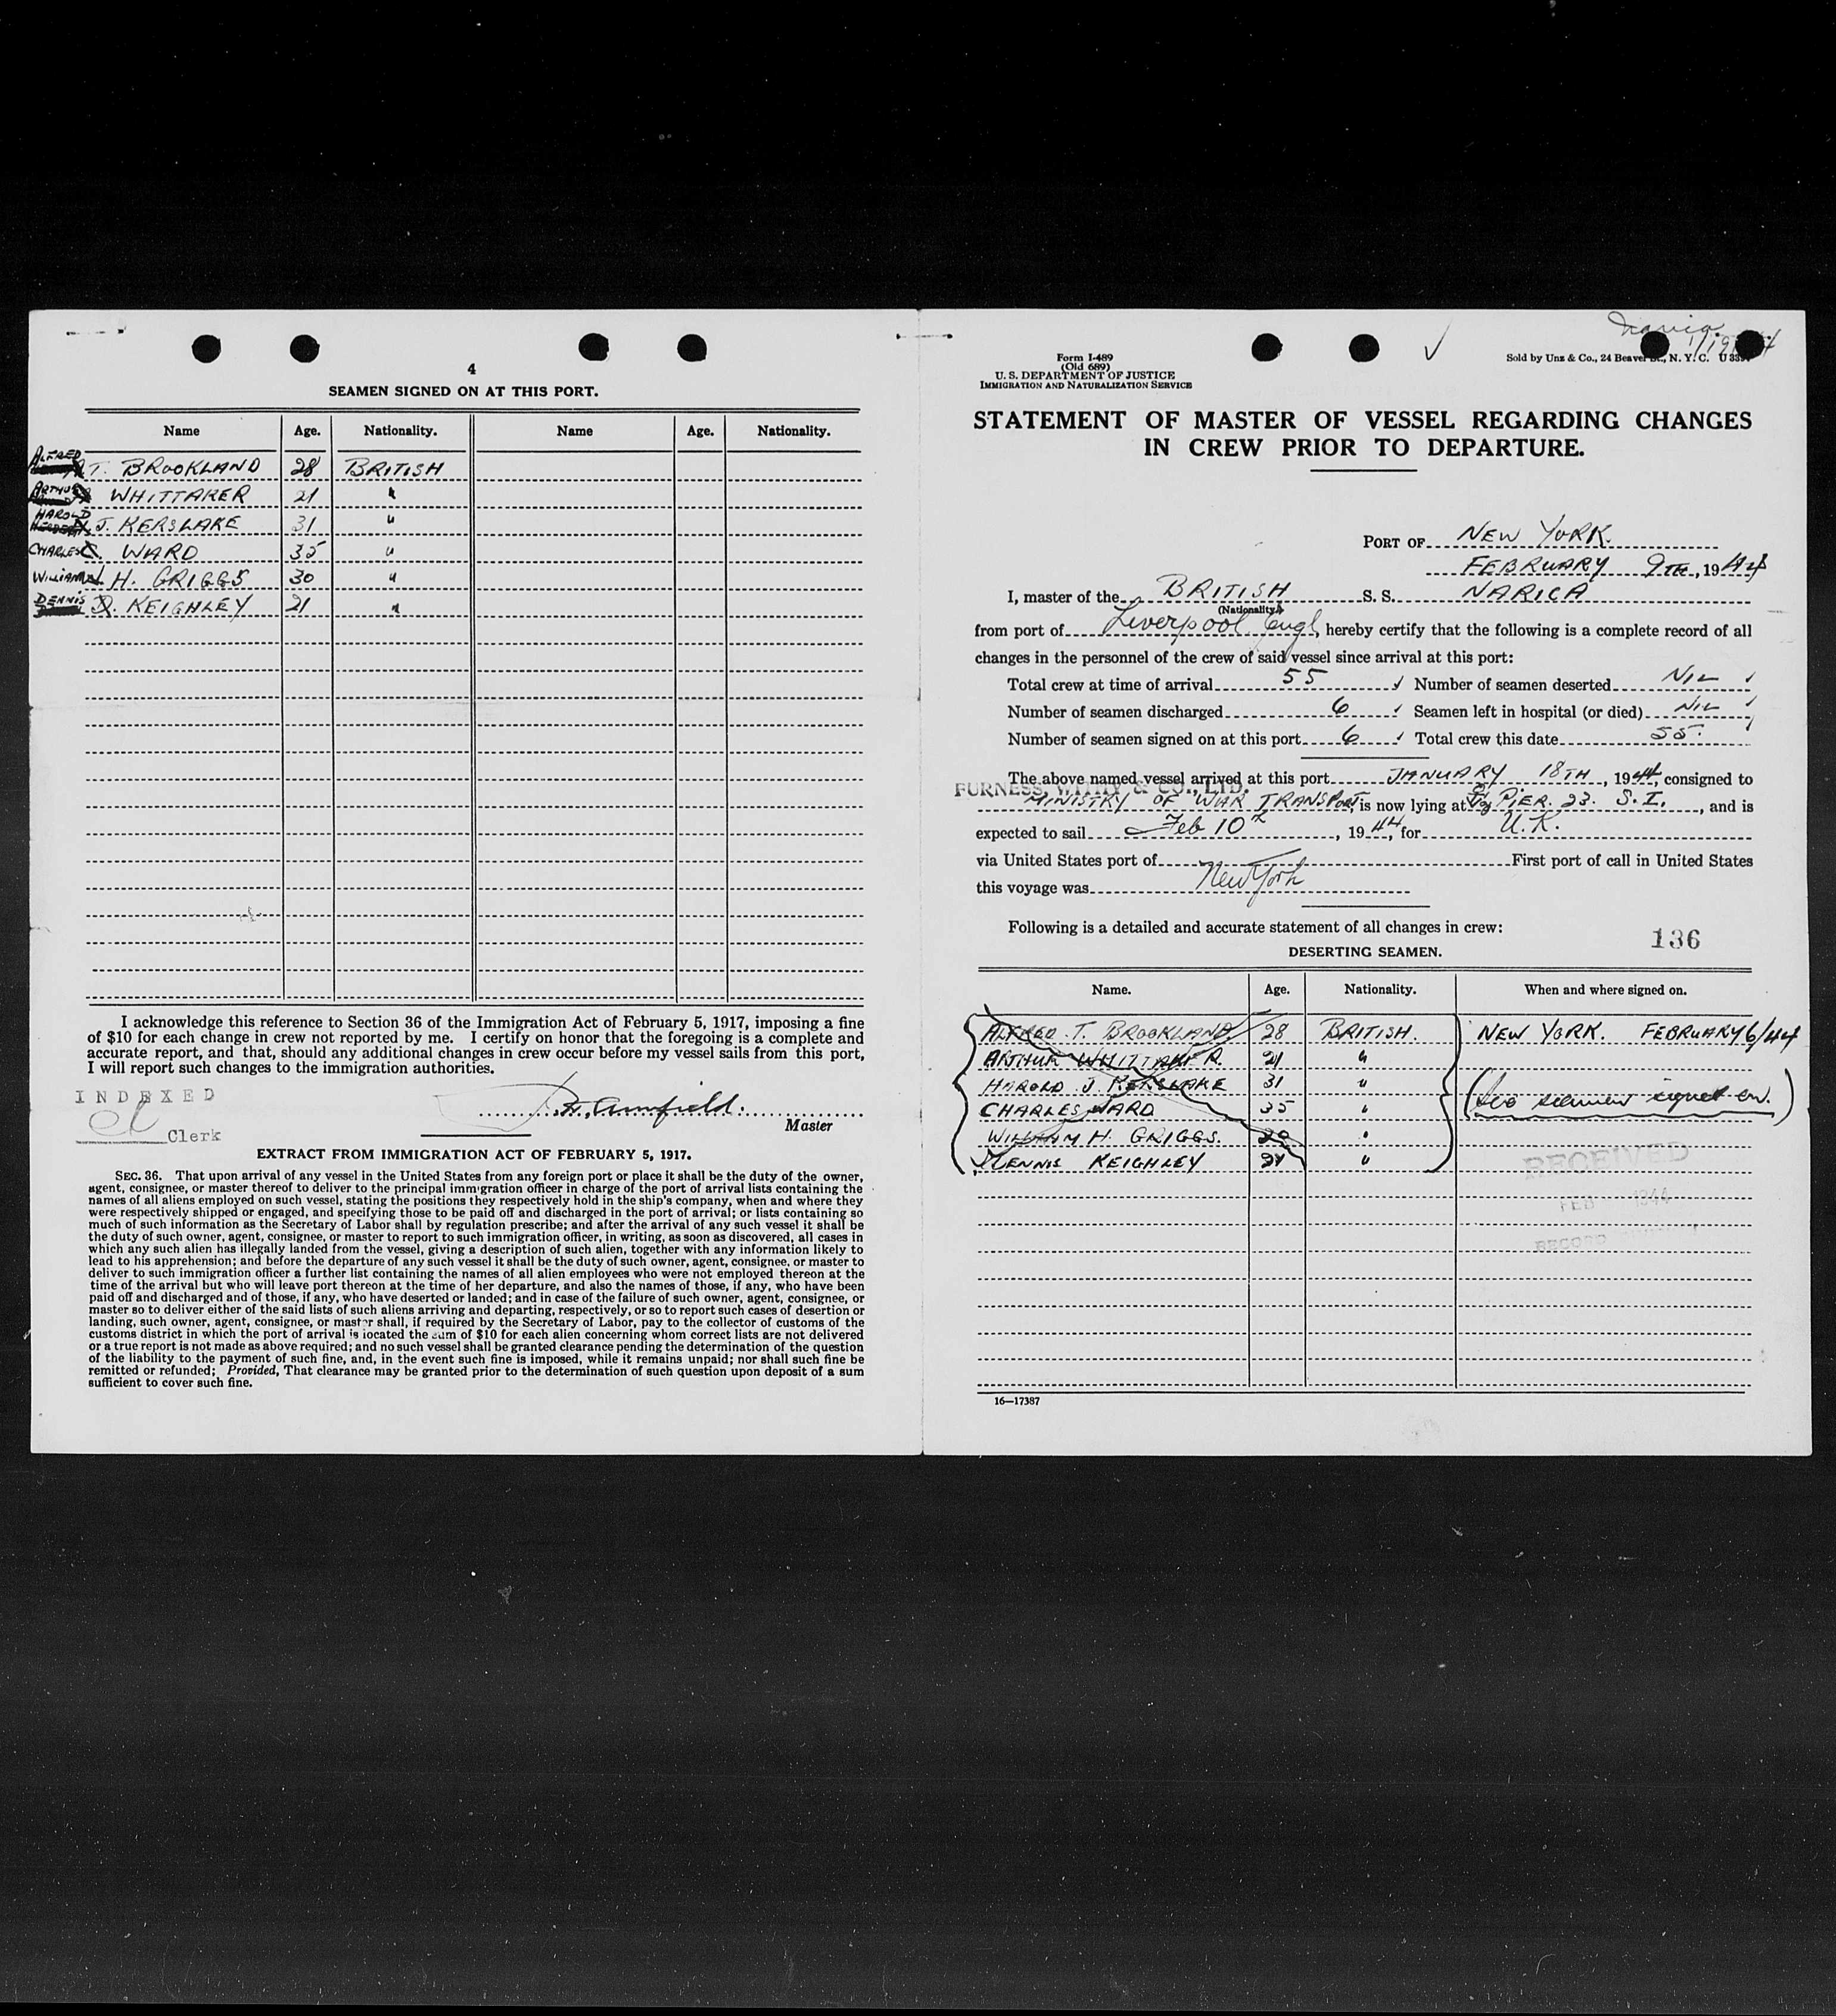 4
SEAMEN SIGNED ON AT THIS PORT.
Name Age. Nationality. Name Age. Nationality.
ALFRED T. BROOKLAND 28 BRITISH
ARTHUR WHITTAKER 21 "
HAROLD J. KERSLAKE 31 "
CHARLES C. WARD 35 "
WILLIAM H. GRIGGS 30 "
DENNIS D. KEIGHLEY 21 "
I acknowledge this reference to Section 36 of the Immigration Act of February 5, 1917, imposing a fine
of $10 for each change in crew not reported by me. I certify on honor that the foregoing is a complete and
accurate report, and that, should any additional changes in crew occur before my vessel sails from this port,
I will report such changes to the immigration authorities.
INDEXED
Clerk
Master
EXTRACT FROM IMMIGRATION ACT OF FEBRUARY 5, 1917.
SEC. 36. That upon arrival of any vessel in the United States from any foreign port or place it shall be the duty of the owner,
agent, consignee, or master thereof to deliver to the principal immigration officer in charge of the port of arrival lists containing the
names of all aliens employed on such vessel, stating the positions they respectively hold in the ship's company, when and where they
were respectively shipped or engaged, and specifying those to be paid off and discharged in the port of arrival; or lists containing so
much of such information as the Secretary of Labor shall by regulation prescribe; and after the arrival of any such vessel it shall be
the duty of such owner, agent, consignee, or master to report to such immigration officer, in writing, as soon as discovered, all cases in
which any such alien has illegally landed from the vessel, giving a description of such alien, together with any information likely to
lead to his apprehension; and before the departure of any such vessel it shall be the duty of such owner, agent, consignee, or master to
deliver to such immigration officer a further list containing the names of all alien employees who were not employed thereon at the
time of the arrival but who will leave port thereon at the time of her departure, and also the names of those, if any, who have been
paid off and discharged and of those, if any, who have deserted or landed; and in case of the failure of such owner, agent, consignee, or
master so to deliver either of the said lists of such aliens arriving and departing, respectively, or so to report such cases of desertion or
landing, such owner, agent, consignee, or master shall, if required by the Secretary of Labor, pay to the collector of customs of the
customs district in which the port of arrival is located the sum of $10 for each alien concerning whom correct lists are not delivered
or a true report is not made as above required; and no such vessel shall be granted clearance pending the determination of the question
of the liability to the payment of such fine, and, in the event such fine is imposed, while it remains unpaid; nor shall such fine be
remitted or refunded; Provided, That clearance may be granted prior to the determination of such question upon deposit of a sum
sufficient to cover such fine.
Form I-489
(Old 689)
U. S. DEPARTMENT OF JUSTICE
IMMIGRATION AND NATURALIZATION SERVICE
Sold by Unz & Co., 24 Beaver St., N. Y. C.
STATEMENT OF MASTER OF VESSEL REGARDING CHANGES
IN CREW PRIOR TO DEPARTURE.
PORT OF NEW YORK.
FEBRUARY 9TH, 1944
I, master of the BRITISH S. S. NARICA
(Nationality)
from port of Liverpool Engl, hereby certify that the following is a complete record of all
changes in the personnel of the crew of said vessel since arrival at this port:
Total crew at time of arrival 55 Number of seamen deserted NIL
Number of seamen discharged 6 Seamen left in hospital (or died) NIL
Number of seamen signed on at this port 6 Total crew this date 55.
The above named vessel arrived at this port JANUARY 18TH, 1944, consigned to
FURNESS, WITHY & CO., LTD.
MINISTRY OF WAR TRANSPORT, is now lying at PIER. 23. S.I., and is
expected to sail Feb 10th, 1944, for U.K.
via United States port of First port of call in United States
this voyage was New York
Following is a detailed and accurate statement of all changes in crew:
136
DESERTING SEAMEN.
Name. Age. Nationality. When and where signed on.
ALFRED. T. BROOKLAND. 28 BRITISH. NEW YORK. FEBRUARY 6/44
ARTHUR WHITTAKER. 21 "
HAROLD J. KERSLAKE 31 "
CHARLES WARD 35 " (See seamen signed on.)
WILLIAM H. GRIGGS. 30 "
DENNIS KEIGHLEY 21 "
RECEIVED
FEB 1944
RECORD
16—17387